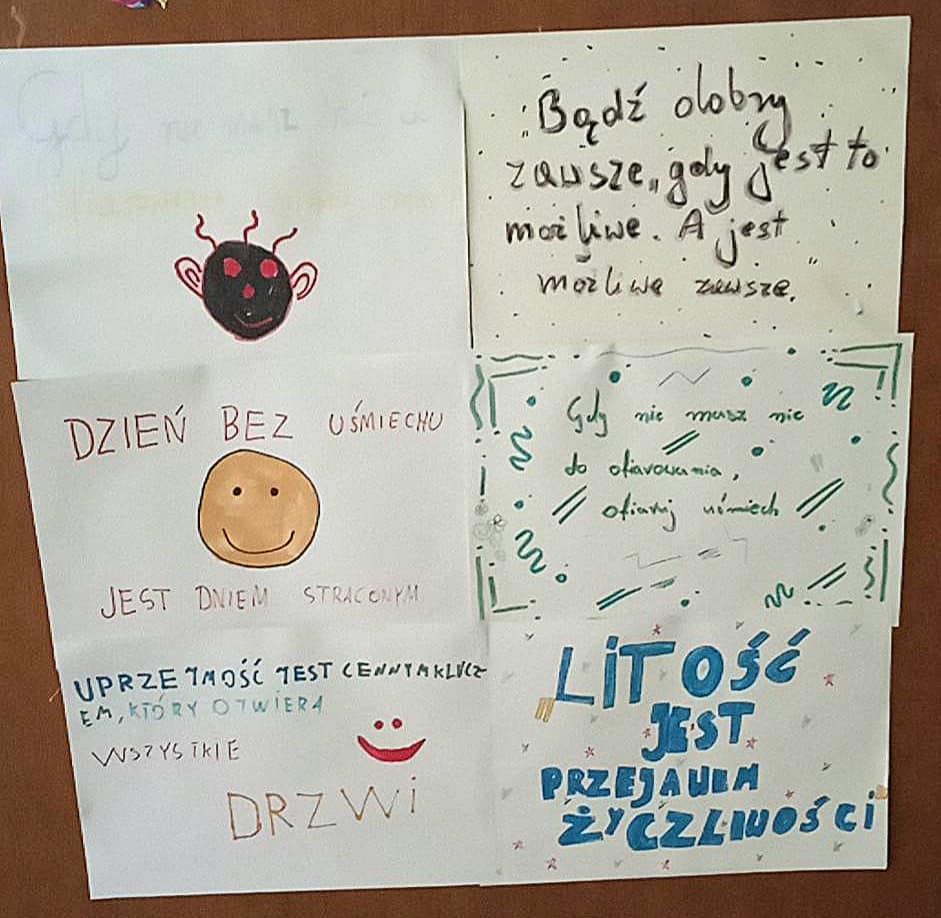 Gdy nie masz nic
„Bądź dobry
zawsze, gdy jest to
możliwe. A jest
możliwe zawsze.”
DZIEŃ BEZ UŚMIECHU
JEST DNIEM STRACONYM
Gdy nie masz nic
do ofiarowania,
ofiaruj uśmiech
UPRZEJMOŚĆ JEST CENNYM KLUCZ
EM, KTÓRY OTWIERA
WSZYSTKIE
DRZWI
LITOŚĆ
JEST
PRZEJAWEM
ŻYCZLIWOŚCI